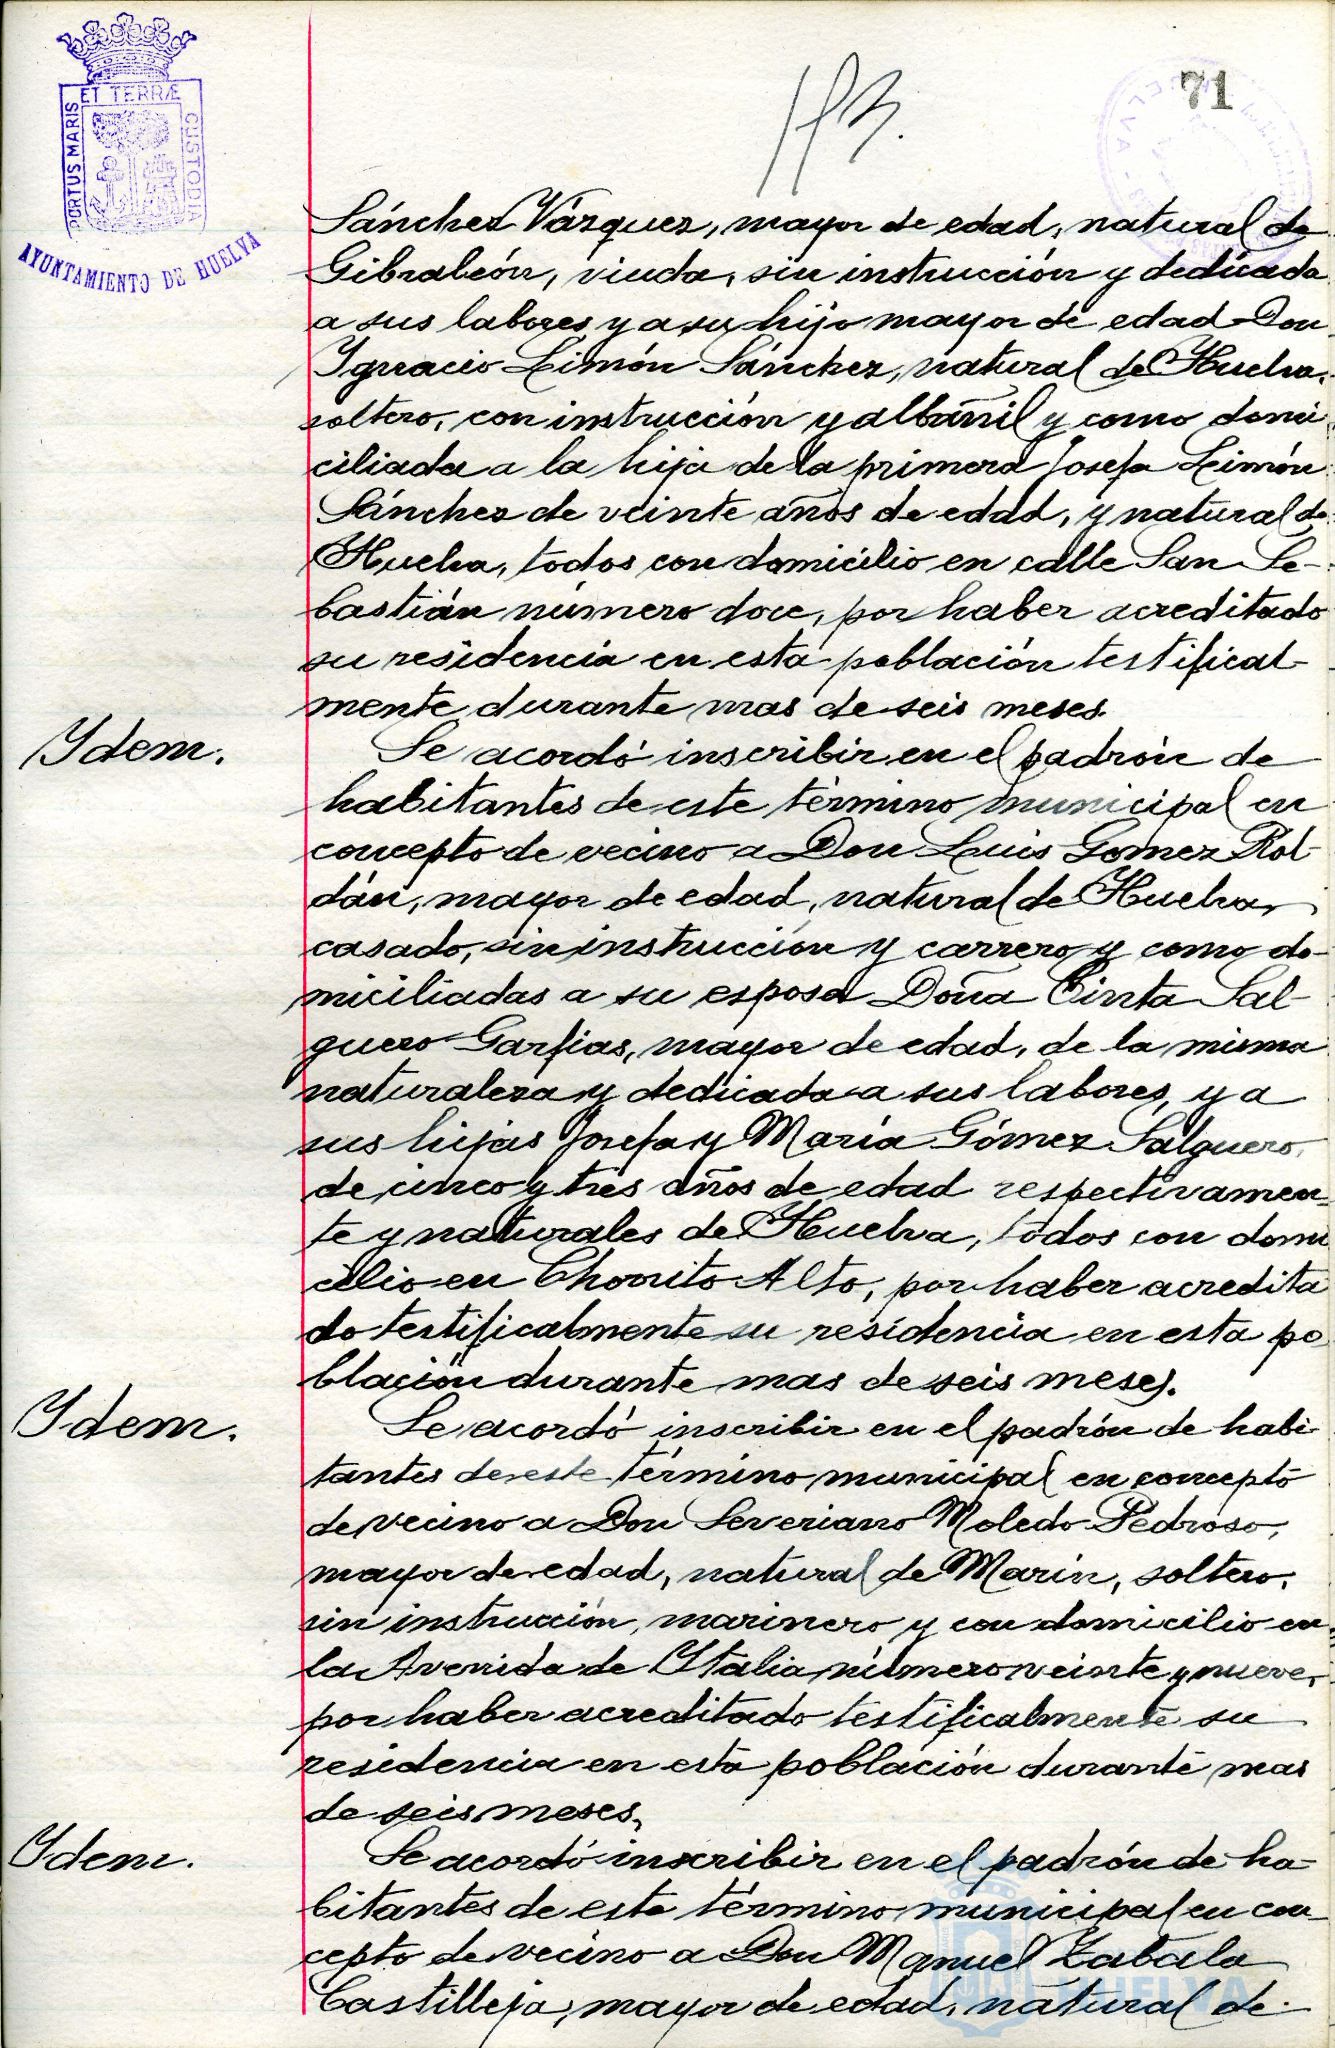 ET TERRÆ
PORTUS MARIS
CUSTODIA
AYUNTAMIENTO DE HUELVA
71
Sánchez Vázquez, mayor de edad, natural de
Gibraleón, viuda, sin instrucción y dedicada
a sus labores y a su hijo mayor de edad Don
Ygnacio Limón Sánchez, natural de Huelva,
soltero, con instrucción y albañil y como domi
ciliada a la hija de la primera Josefa Limón
Sánchez de veinte años de edad, y natural de
Huelva, todos con domicilio en calle San Se-
bastián número doce, por haber acreditado
su residencia en esta población testifical-
mente durante mas de seis meses.
Ydem.
Se acordó inscribir en el padrón de
habitantes de este término municipal en
concepto de vecino a Don Luis Gomez Rol-
dán, mayor de edad, natural de Huelva,
casado, sin instrucción y carrero y como do-
miciliadas a su esposa Doña Cinta Sal-
guero Garfias, mayor de edad, de la misma
naturaleza y dedicada a sus labores, y a
sus hijas Josefa y María Gómez Salguero,
de cinco y tres años de edad respectivamen-
te y naturales de Huelva, todos con domi
cilio en Chorrito Alto, por haber acredita
do testificalmente su residencia en esta po
blación durante mas de seis meses.
Ydem.
Se acordó inscribir en el padrón de habi-
tantes de este término municipal en concepto
de vecino a Don Severiano Moledo Pedroso,
mayor de edad, natural de Marin, soltero,
sin instrucción, marinero y con domicilio en
la Avenida de Ytalia número veinte y nueve,
por haber acreditado testificalmente su
residencia en esta población durante mas
de seis meses.
Ydem.
Se acordó inscribir en el padrón de ha-
bitantes de este término municipal en con-
cepto de vecino a Don Manuel Zabala
Castilleja, mayor de edad, natural de
HUELVA